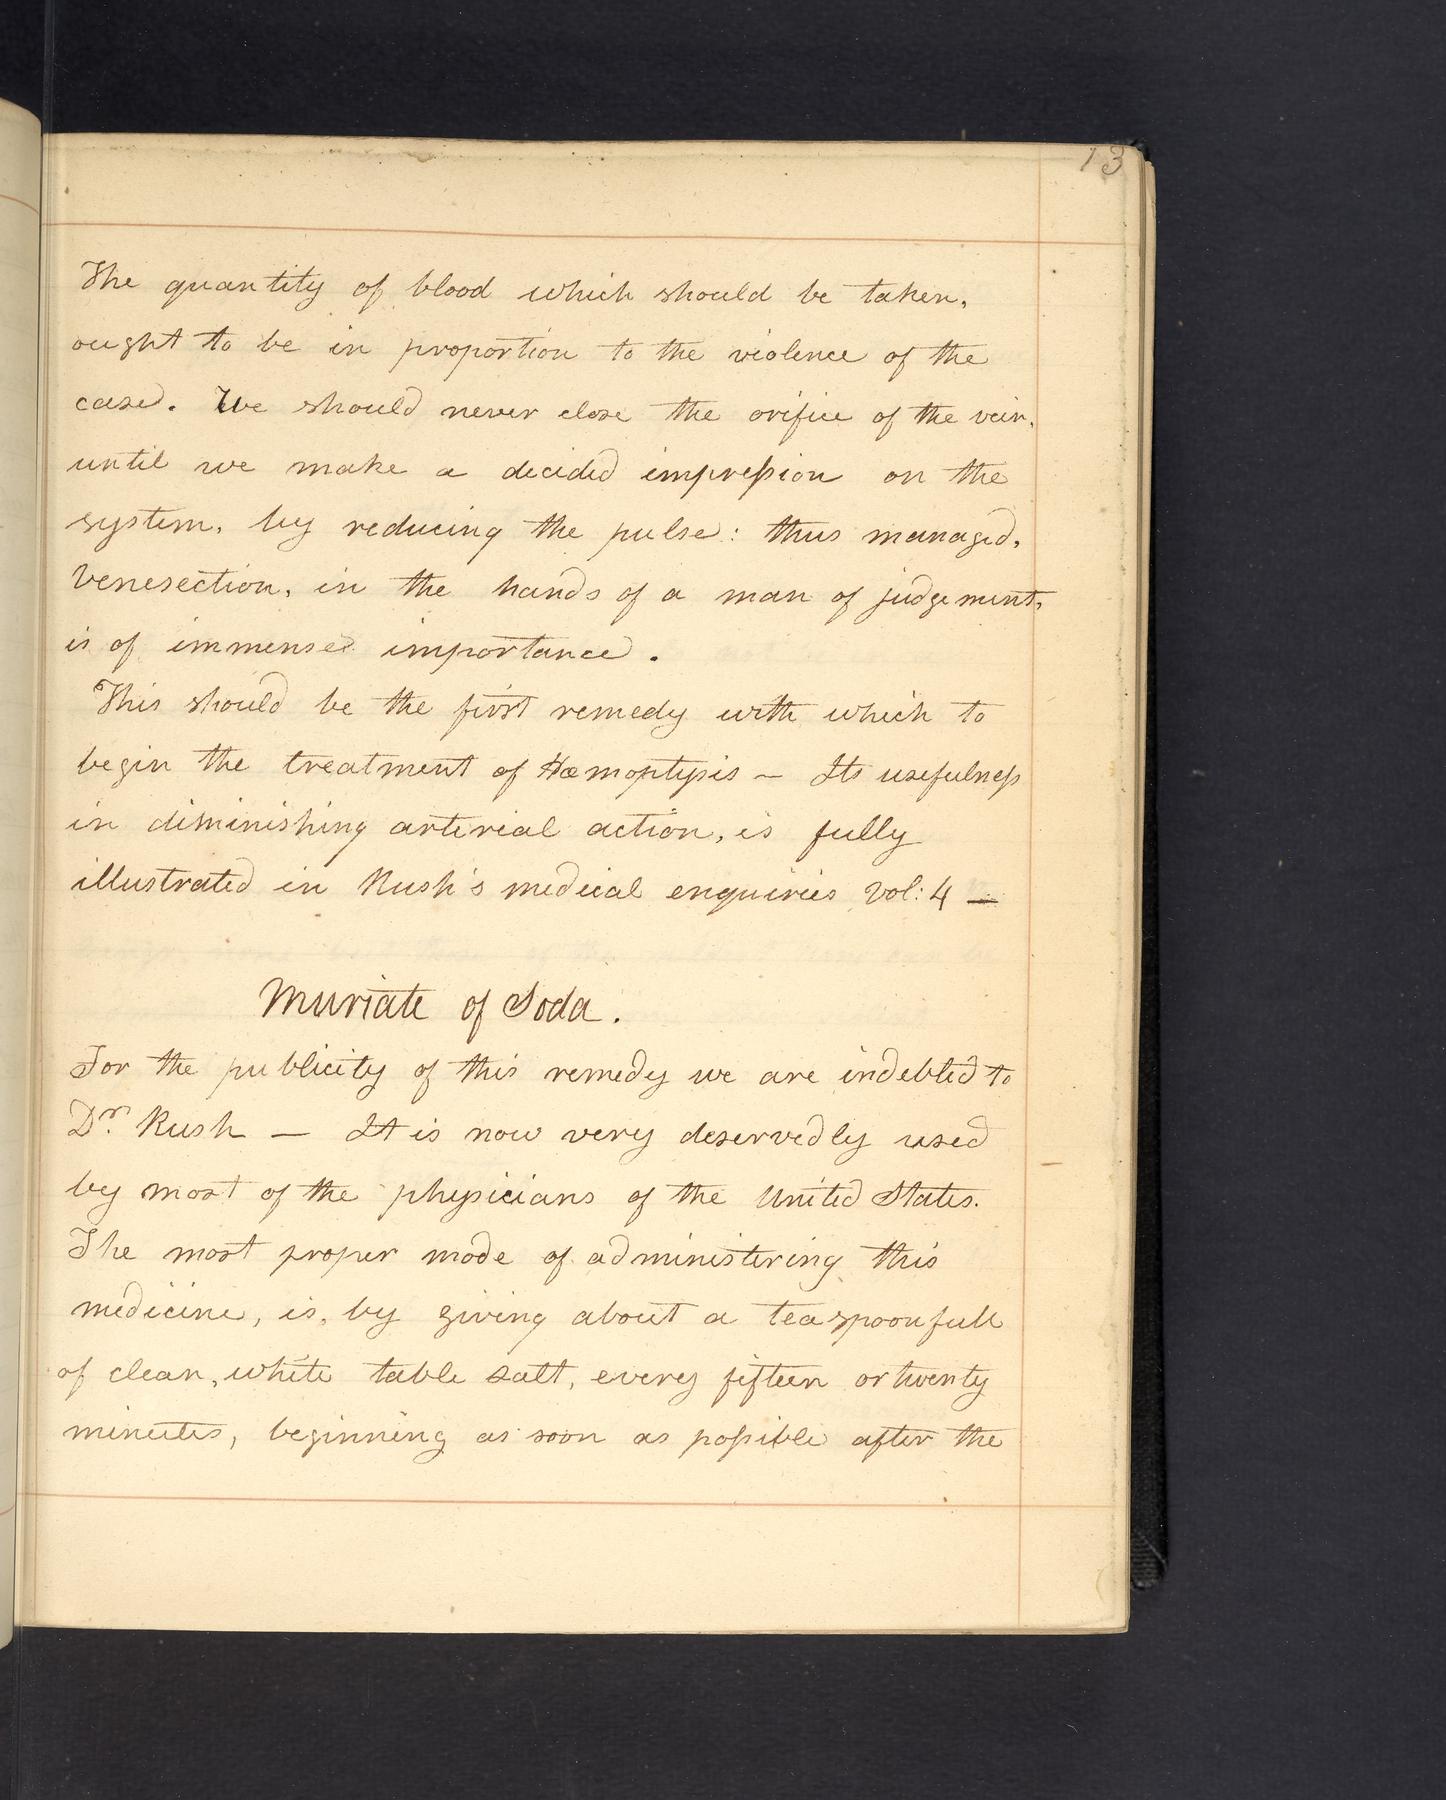 13
The quantity of blood which should be taken,
ought to be in proportion to the violence of the
case. We should never close the orifice of the vein,
until we make a decided impreſsion on the
system, by reducing the pulse: thus managed,
Venesection, in the hands of a man of judgement,
is of immense importance.
This should be the first remedy with which to
begin the treatment of Hæmoptysis — Its usefulneſs
in diminishing arterial action, is fully
illustrated in Rush's medical enquiries vol: 4 —
Muriate of Soda.
For the publicity of this remedy we are indebted to
Dr. Rush — It is now very deservedly used
by most of the physicians of the United States.
The most proper mode of administering this
medicine, is, by giving about a teaspoonfull
of clean, white table salt, every fifteen or twenty
minutes, beginning as soon as poſsible after the